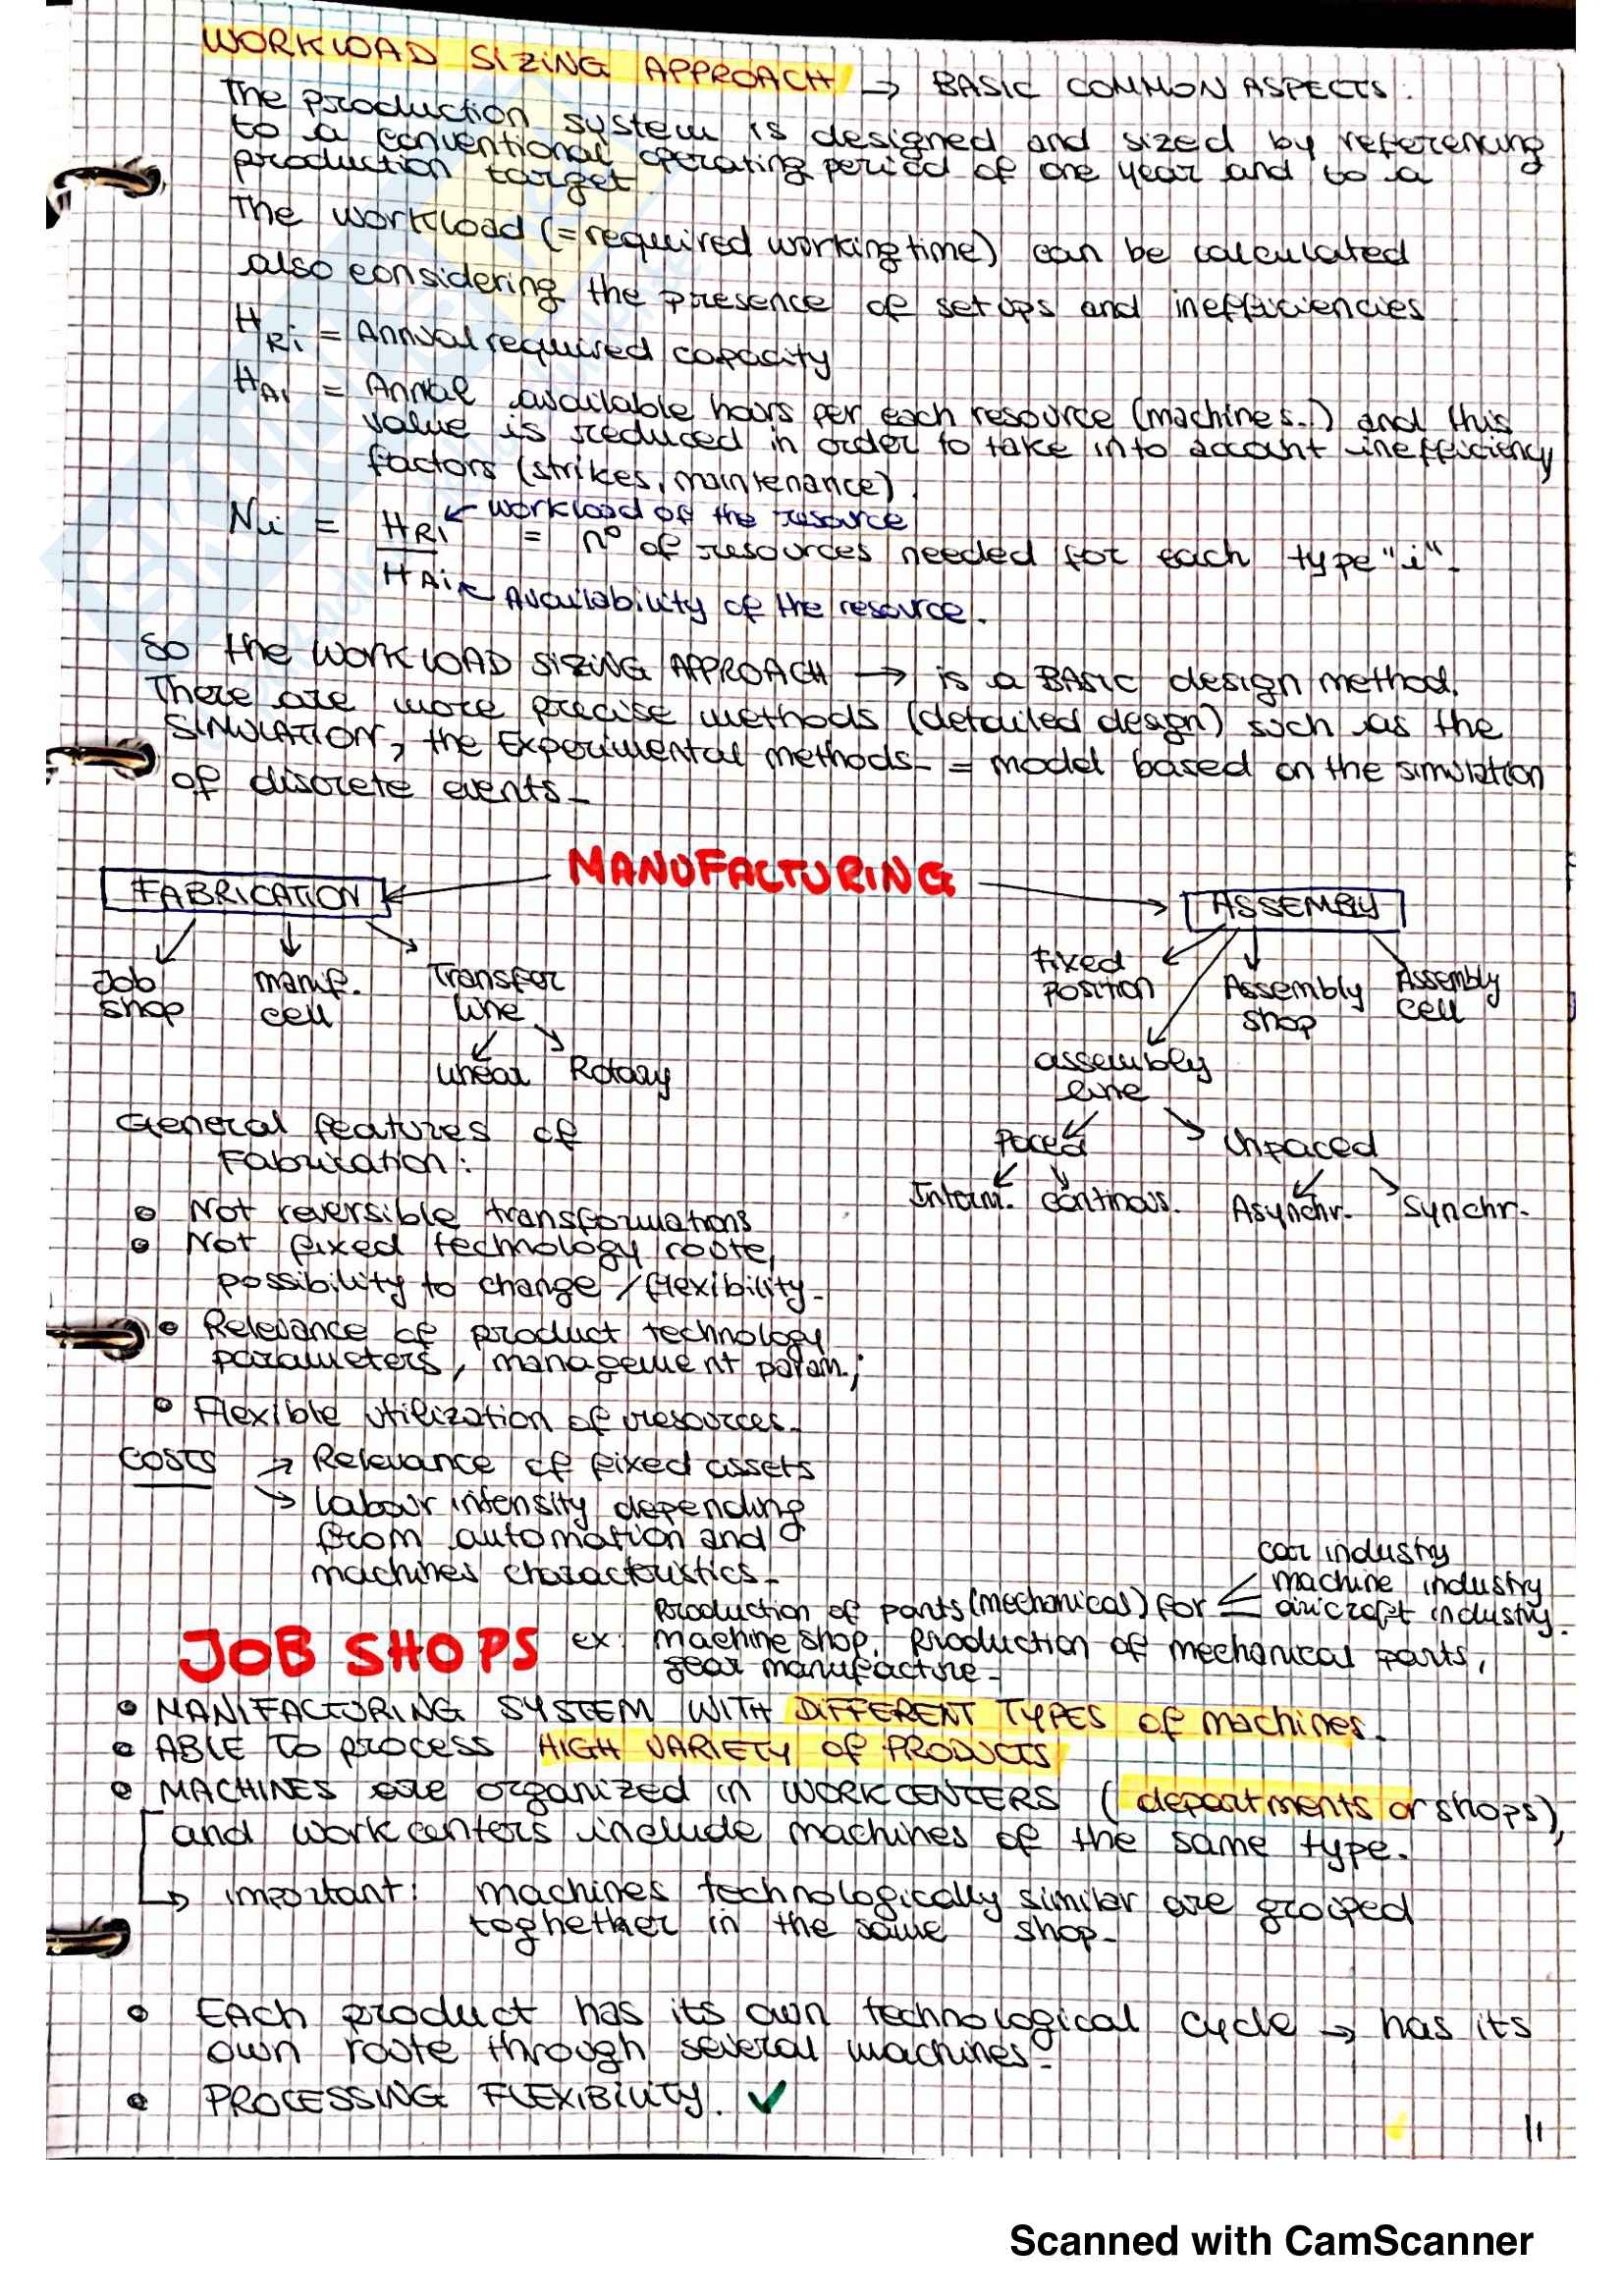 WORKLOAD SIZING APPROACH → BASIC COMMON ASPECTS.
The production system is designed and sized by referencing
to a conventional operating period of one year and to a
production target
The workload (=required working time) can be calculated
also considering the presence of setups and inefficiencies.
HRi = Annual required capacity
HAi = Annal available hours per each resource (machines..) and this
value is reduced in order to take into account inefficiency
factors (strikes, maintenance).
Ni = HRi ← workload of the resource
= n° of resources needed for each type "i".
HAi ← Availability of the resource.
So the WORKLOAD SIZING APPROACH → is a BASIC design method.
There are more precise methods (detailed design) such as the
SIMULATION, the Experimental methods = model based on the simulation
of discrete events_
MANUFACTURING
FABRICATION
ASSEMBLY
Job shop
manif. cell
Transfer line
Linear
Rotary
Fixed position
Assembly shop
Assembly cell
assembly line
Paced
Unpaced
Interm.
continous.
Asynchr.
Synchr.
General features of
Fabrication:
• Not reversible transformations
• Not fixed technology route,
possibility to change / flexibility_
• Relevance of product technology
parameters, management param.;
• Flexible utilization of resources_
COSTS → Relevance of fixed assets
→ Labour intensity depending
from automation and
machines characteristics_
car industry
machine industry
Production of parts (mechanical) for aircraft industry.
JOB SHOPS ex: machine shop. Production of mechanical parts,
gear manufacture_
• MANIFACTURING SYSTEM WITH DIFFERENT TYPES of machines.
• ABLE TO process HIGH VARIETY of PRODUCTS
• MACHINES are organized in WORKCENTERS (departments or shops),
and workcenters include machines of the same type.
→ important: machines technologically similar are groiped
toghether in the same shop_
• Each product has its own technological cycle → has its
own route through several machines_
• PROCESSING FLEXIBILITY. ✓
11
Scanned with CamScanner